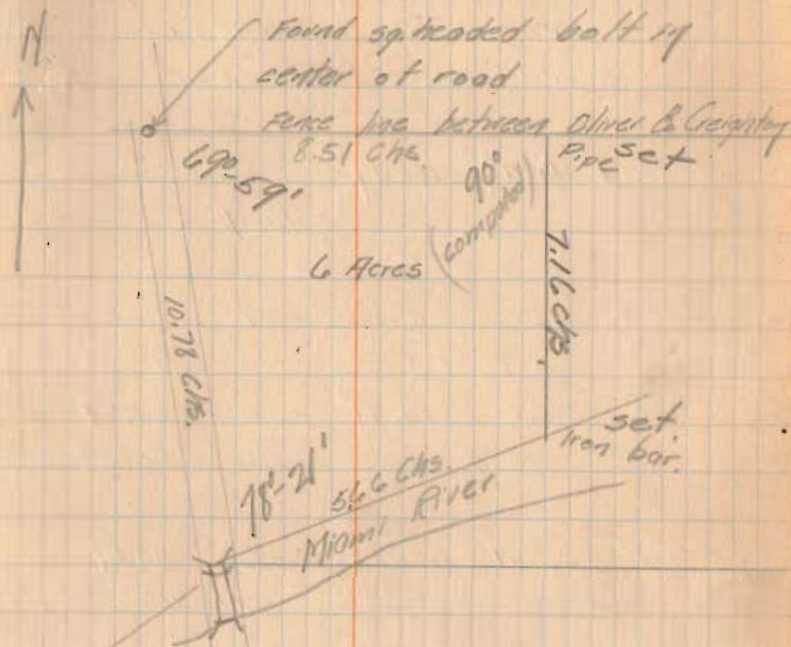 N
Found sq. headed bolt in
center of road
Fence line between Oliver & Creighton
8.51 Chs.
Pipe set
69°-59'
90°
(computed)
6 Acres
7.16 chs.
10.78 Chs.
set
Iron bar.
78°-21'
5.66 Chs.
Miami River